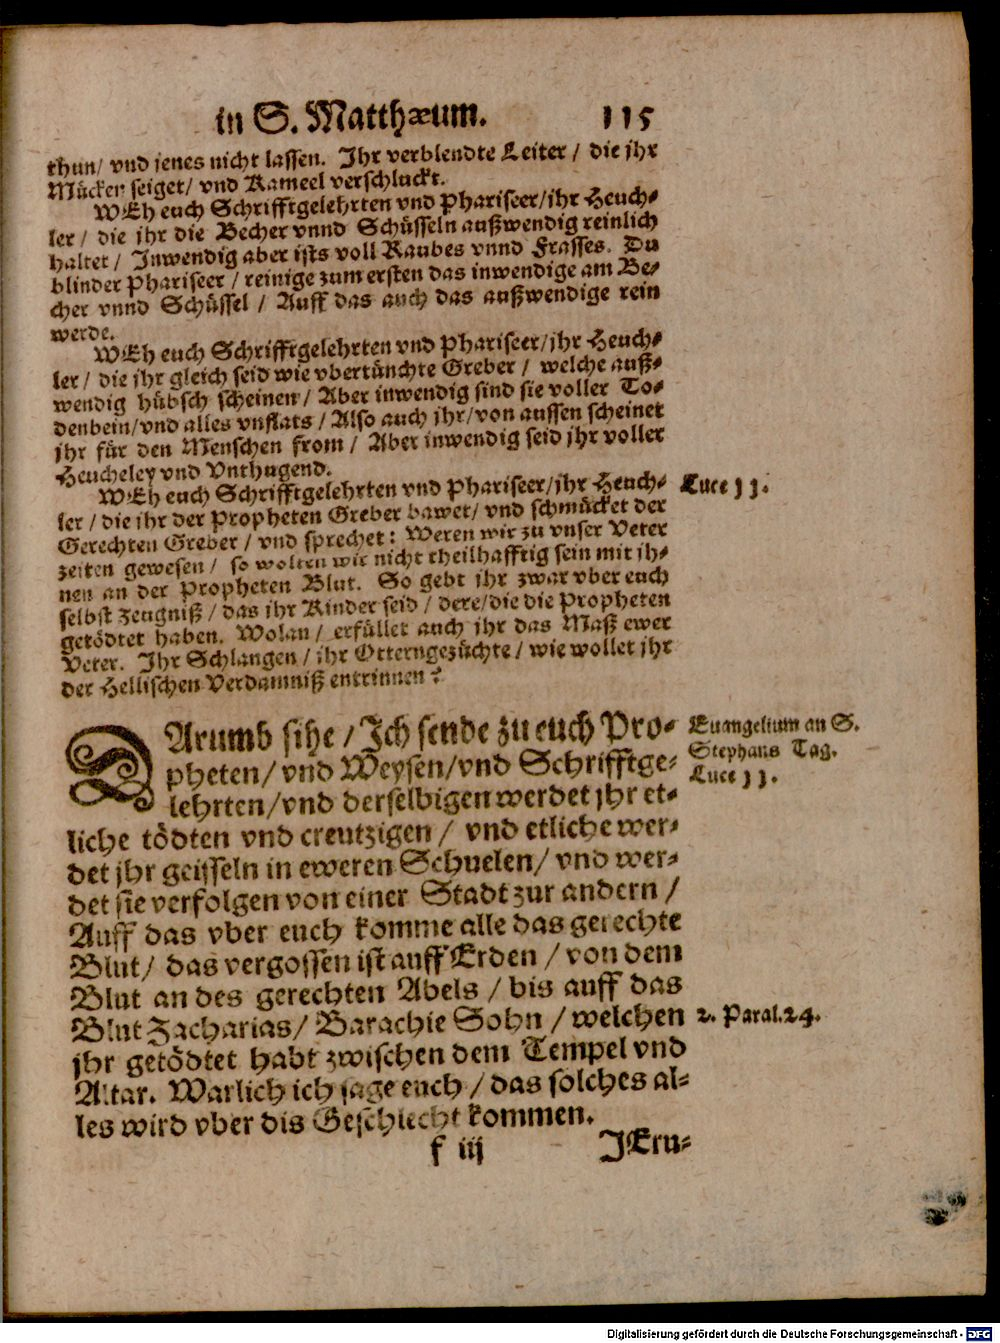 in S. Matthæum. 115
thun/ vnd jenes nicht lassen. Ihr verblendte Leiter / die jhr
Mücken seiget/ vnd Kameel verschluckt.
WEh euch Schrifftgelehrten vnd Phariseer/jhr Heuch-
ler / die jhr die Becher vnnd Schüsseln außwendig reinlich
haltet / Inwendig aber ists voll Raubes vnnd Frasses. Du
blinder Phariseer / reinige zum ersten das inwendige am Be-
cher vnnd Schüssel / Auff das auch das außwendige rein
werde.
WEh euch Schrifftgelehrten vnd Phariseer/jhr Heuch-
ler / die jhr gleich seid wie vbertünchte Greber / welche auß-
wendig hübsch scheinen / Aber inwendig sind sie voller To-
denbein/vnd alles vnflats / Also auch jhr/von aussen scheinet
jhr für den Menschen from / Aber inwendig seid jhr voller
Heucheley vnd Vnthugend.
WEh euch Schrifftgelehrten vnd Phariseer/jhr Heuch-
Luce 11.
ler / die jhr der Propheten Greber bawet/ vnd schmücket der
Gerechten Greber / vnd sprechet : Weren wir zu vnser Veter
zeiten gewesen / so wolten wir nicht theilhafftig sein mit jh-
nen an der Propheten Blut. So gebt jhr zwar vber euch
selbst zeugniß / das jhr Kinder seid / dere/die die Propheten
getödtet haben. Wolan / erfüllet auch jhr das Maß ewer
Veter. Ihr Schlangen / jhr Otterngezüchte / wie wollet jhr
der Hellischen Verdamniß entrinnen ?
DArumb sihe / Ich sende zu euch Pro-
Euangelium an S.
Stephans Tag.
Luce 11.
pheten/ vnd Weysen/vnd Schrifftge-
lehrten/vnd derselbigen werdet jhr et-
liche tödten vnd creutzigen / vnd etliche wer-
det jhr geisseln in eweren Schuelen/ vnd wer-
det sie verfolgen von einer Stadt zur andern /
Auff das vber euch komme alle das gerechte
Blut/ das vergossen ist auff Erden / von dem
Blut an des gerechten Abels / bis auff das
Blut Zacharias/ Barachie Sohn / welchen
2. Paral.24.
jhr getödtet habt zwischen dem Tempel vnd
Altar. Warlich ich sage euch / das solches al-
les wird vber dis Geschlecht kommen.
f iij JEru-
Digitalisierung gefördert durch die Deutsche Forschungsgemeinschaft - DFG